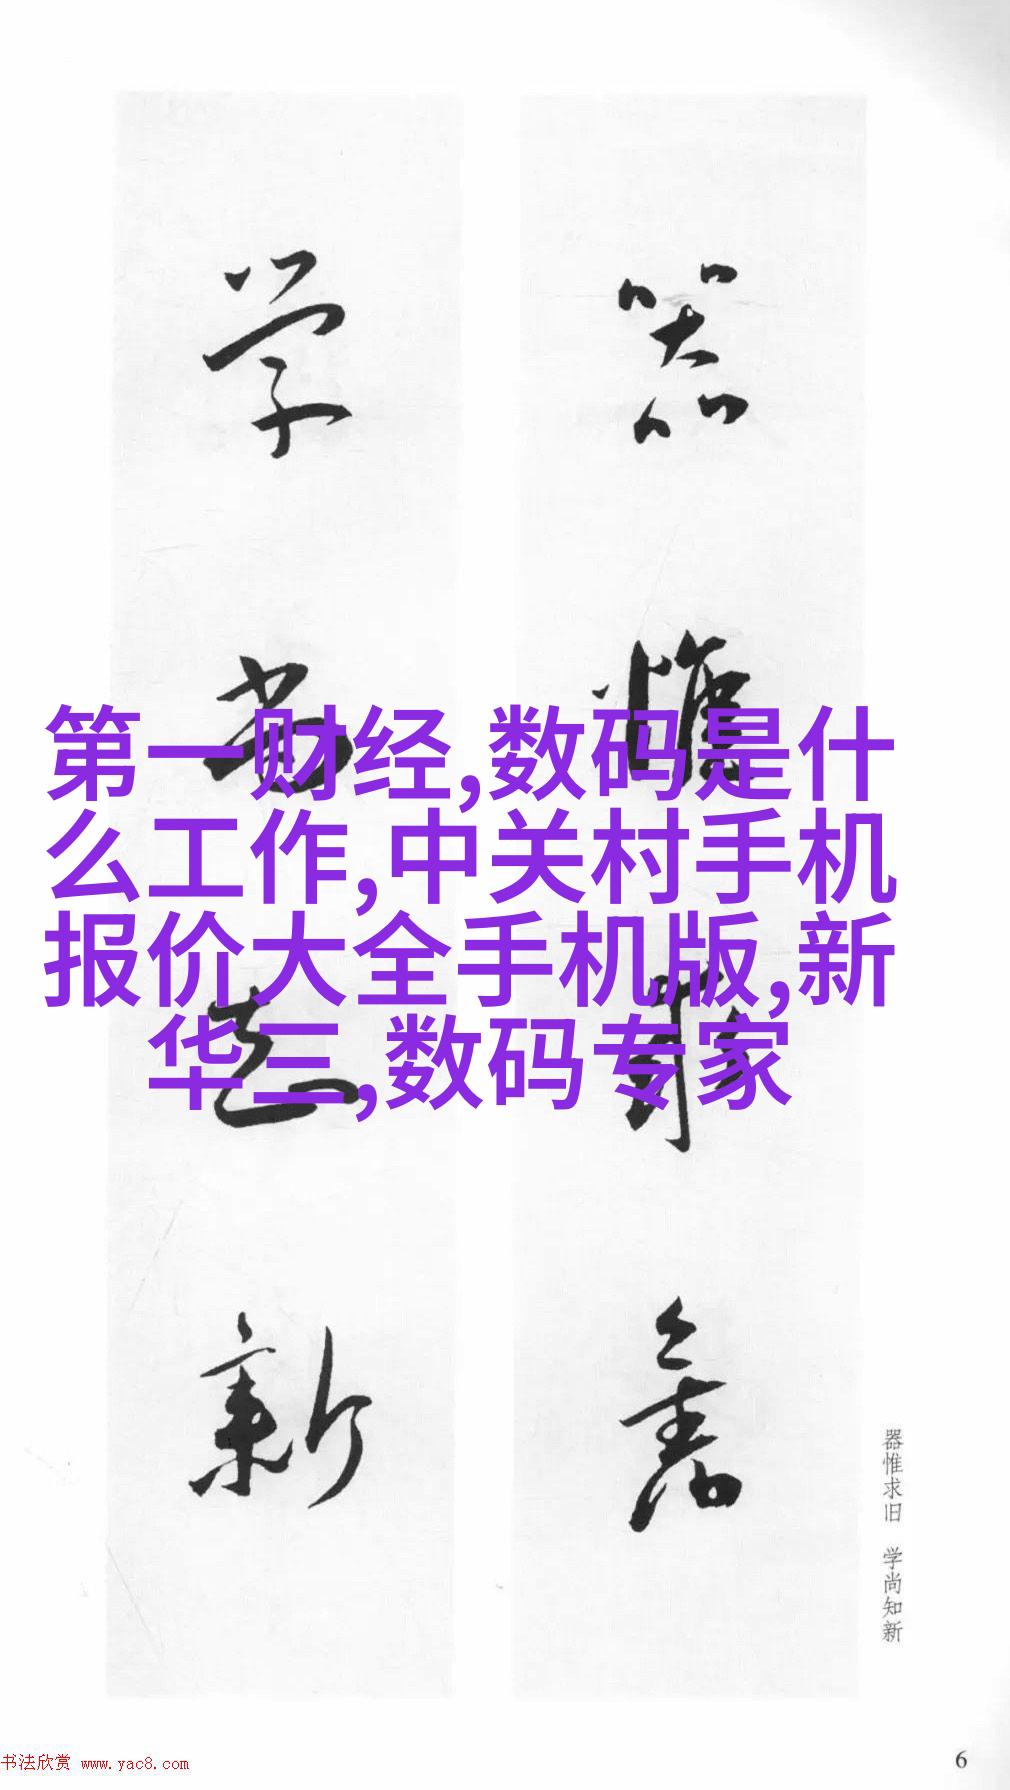 器惟求舊
学尚知新
第一财经,数码是什
么工作,中关村手机
报价大全手机版,新
华三,数码专家
器惟求旧 学尚知新
书法欣赏 www.yac8.com
6